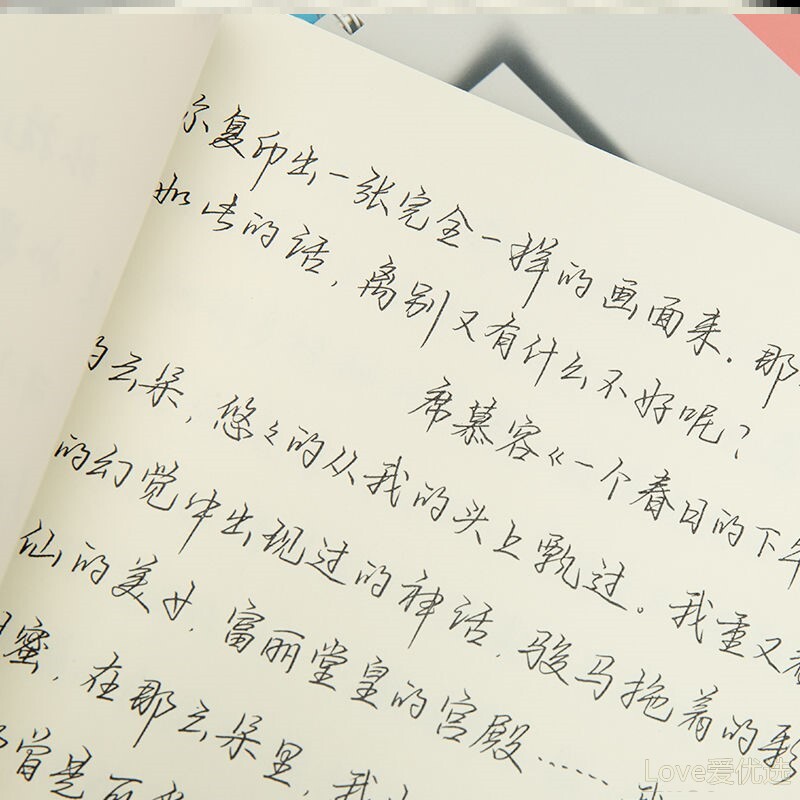 复印出一张完全一样的画面来。那
如此的话，离别又有什么不好呢？
席慕容《一个春日的下午
的云朵，悠々的从我的头上飘过。我重又看
的幻觉中出现过的神话，骏马拖着的彩
仙的美女，富丽堂皇的宫殿……
蜜，在那云朵里，我
曾是
Love爱优选